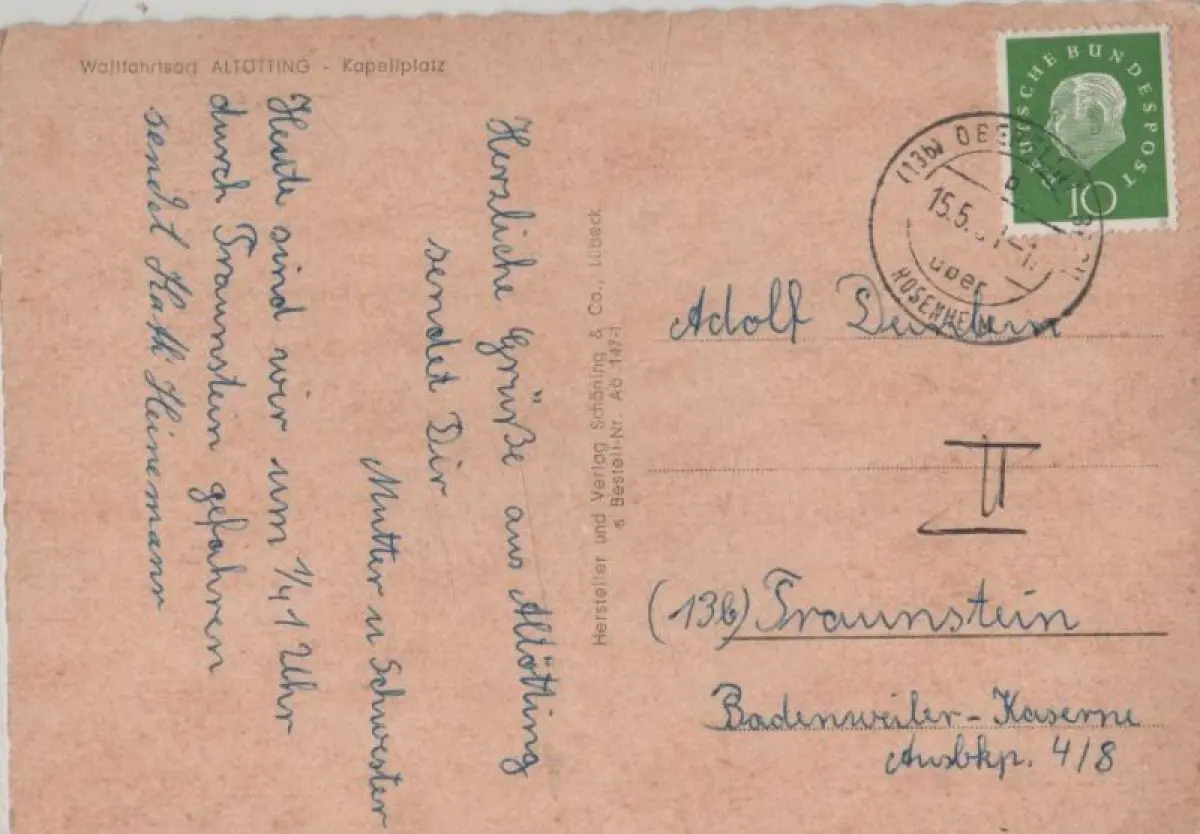 Wallfahrtsort ALTÖTTING - Kapellplatz
Herzliche Grüße aus Altötting
sendet Dir
Mutter u Schwester
Heute sind wir um 1/4 1 Uhr
durch Traunstein gefahren
sendet Kathi Heinemann
Hersteller und Verlag Schöning & Co., Lübeck
Bestell-Nr. Aö 147-1
DEUTSCHE BUNDESPOST
10
(13b)
15.5.
über
ROSENHEIM
Adolf
II
(13b) Traunstein
Badenweiler-Kaserne
Ausbkp. 4/8